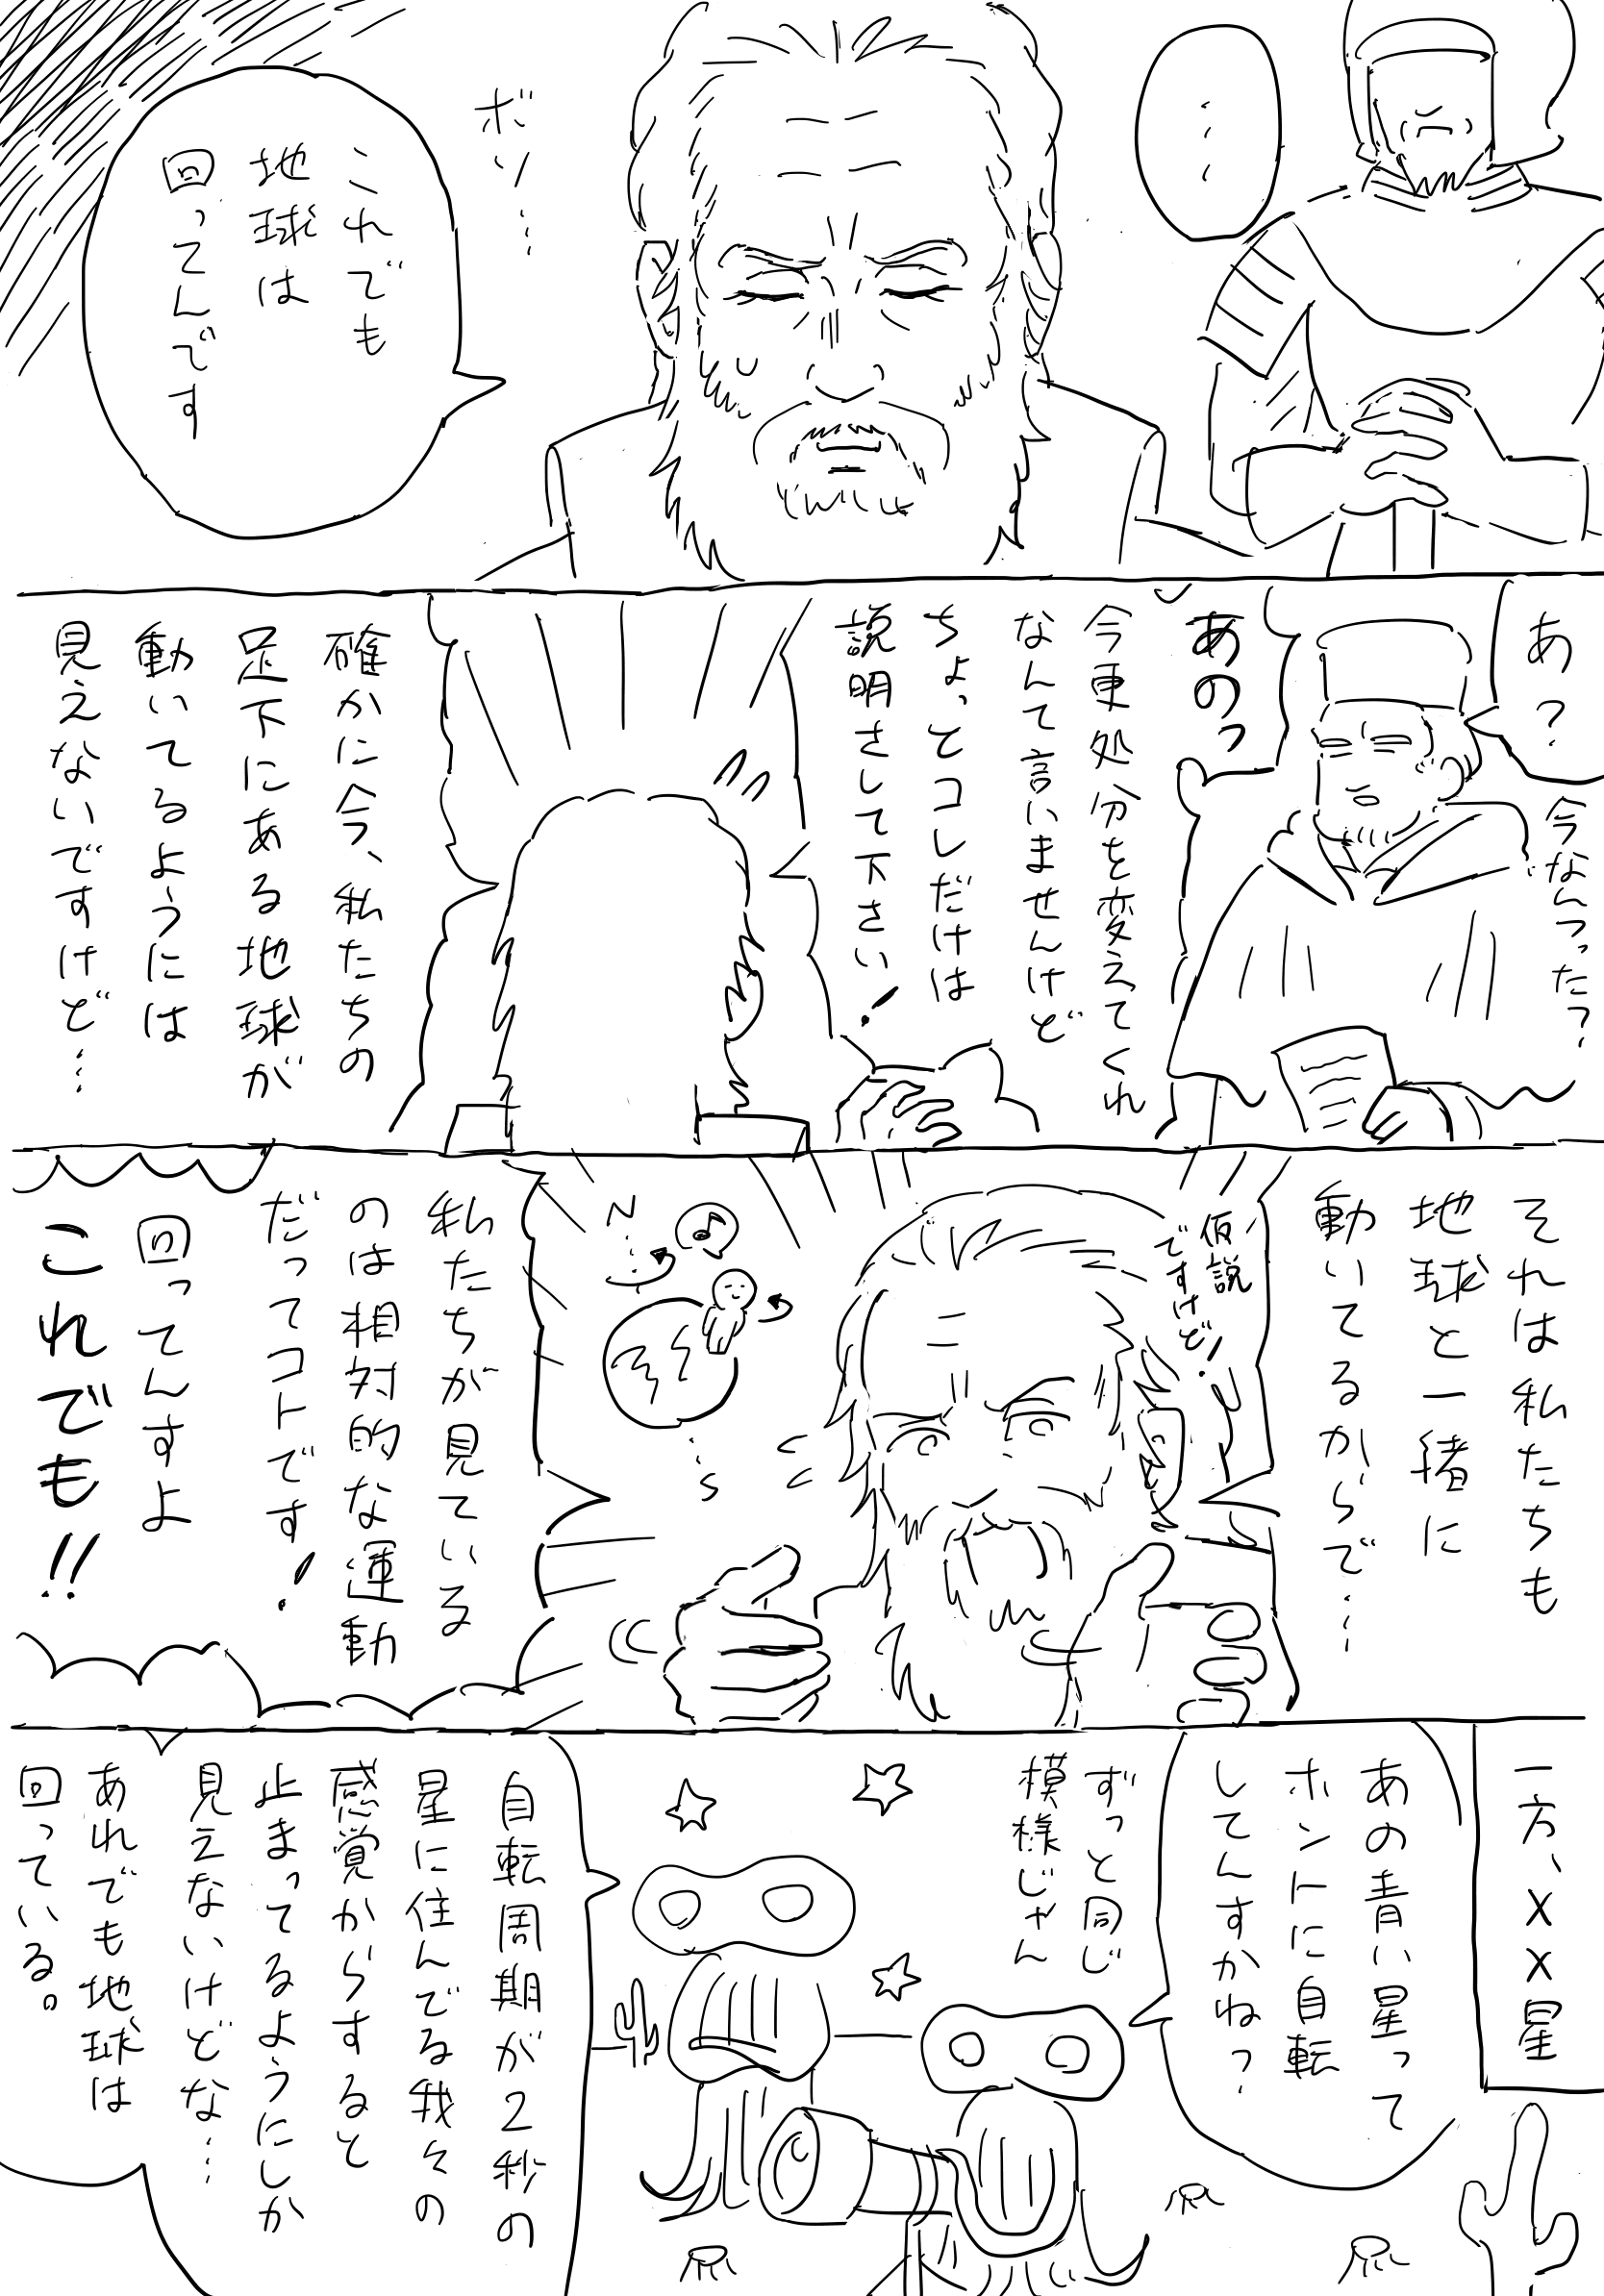 …
ボソ…
これでも
地球は
回ってんです
あ?
今なんつった?
あのっ
今更処分を変えてくれ
なんて言いませんけど
ちょっとコレだけは
説明さして下さい!
確かに今、私たちの
足下にある地球が
動いてるようには
見えないですけど…
それは私たちも
地球と一緒に
動いてるからで…
仮説
ですけど!
N
♪
S
私たちが見ている
のは相対的な運動
だってコトです!
回ってんすよ
これでも!!
一方、XX星
あの青い星って
ホントに自転
してんすかね?
ずっと同じ
模様じゃん
自転周期が2秒の
星に住んでる我々の
感覚からすると
止まってるようにしか
見えないけどな…
あれでも地球は
回っている。